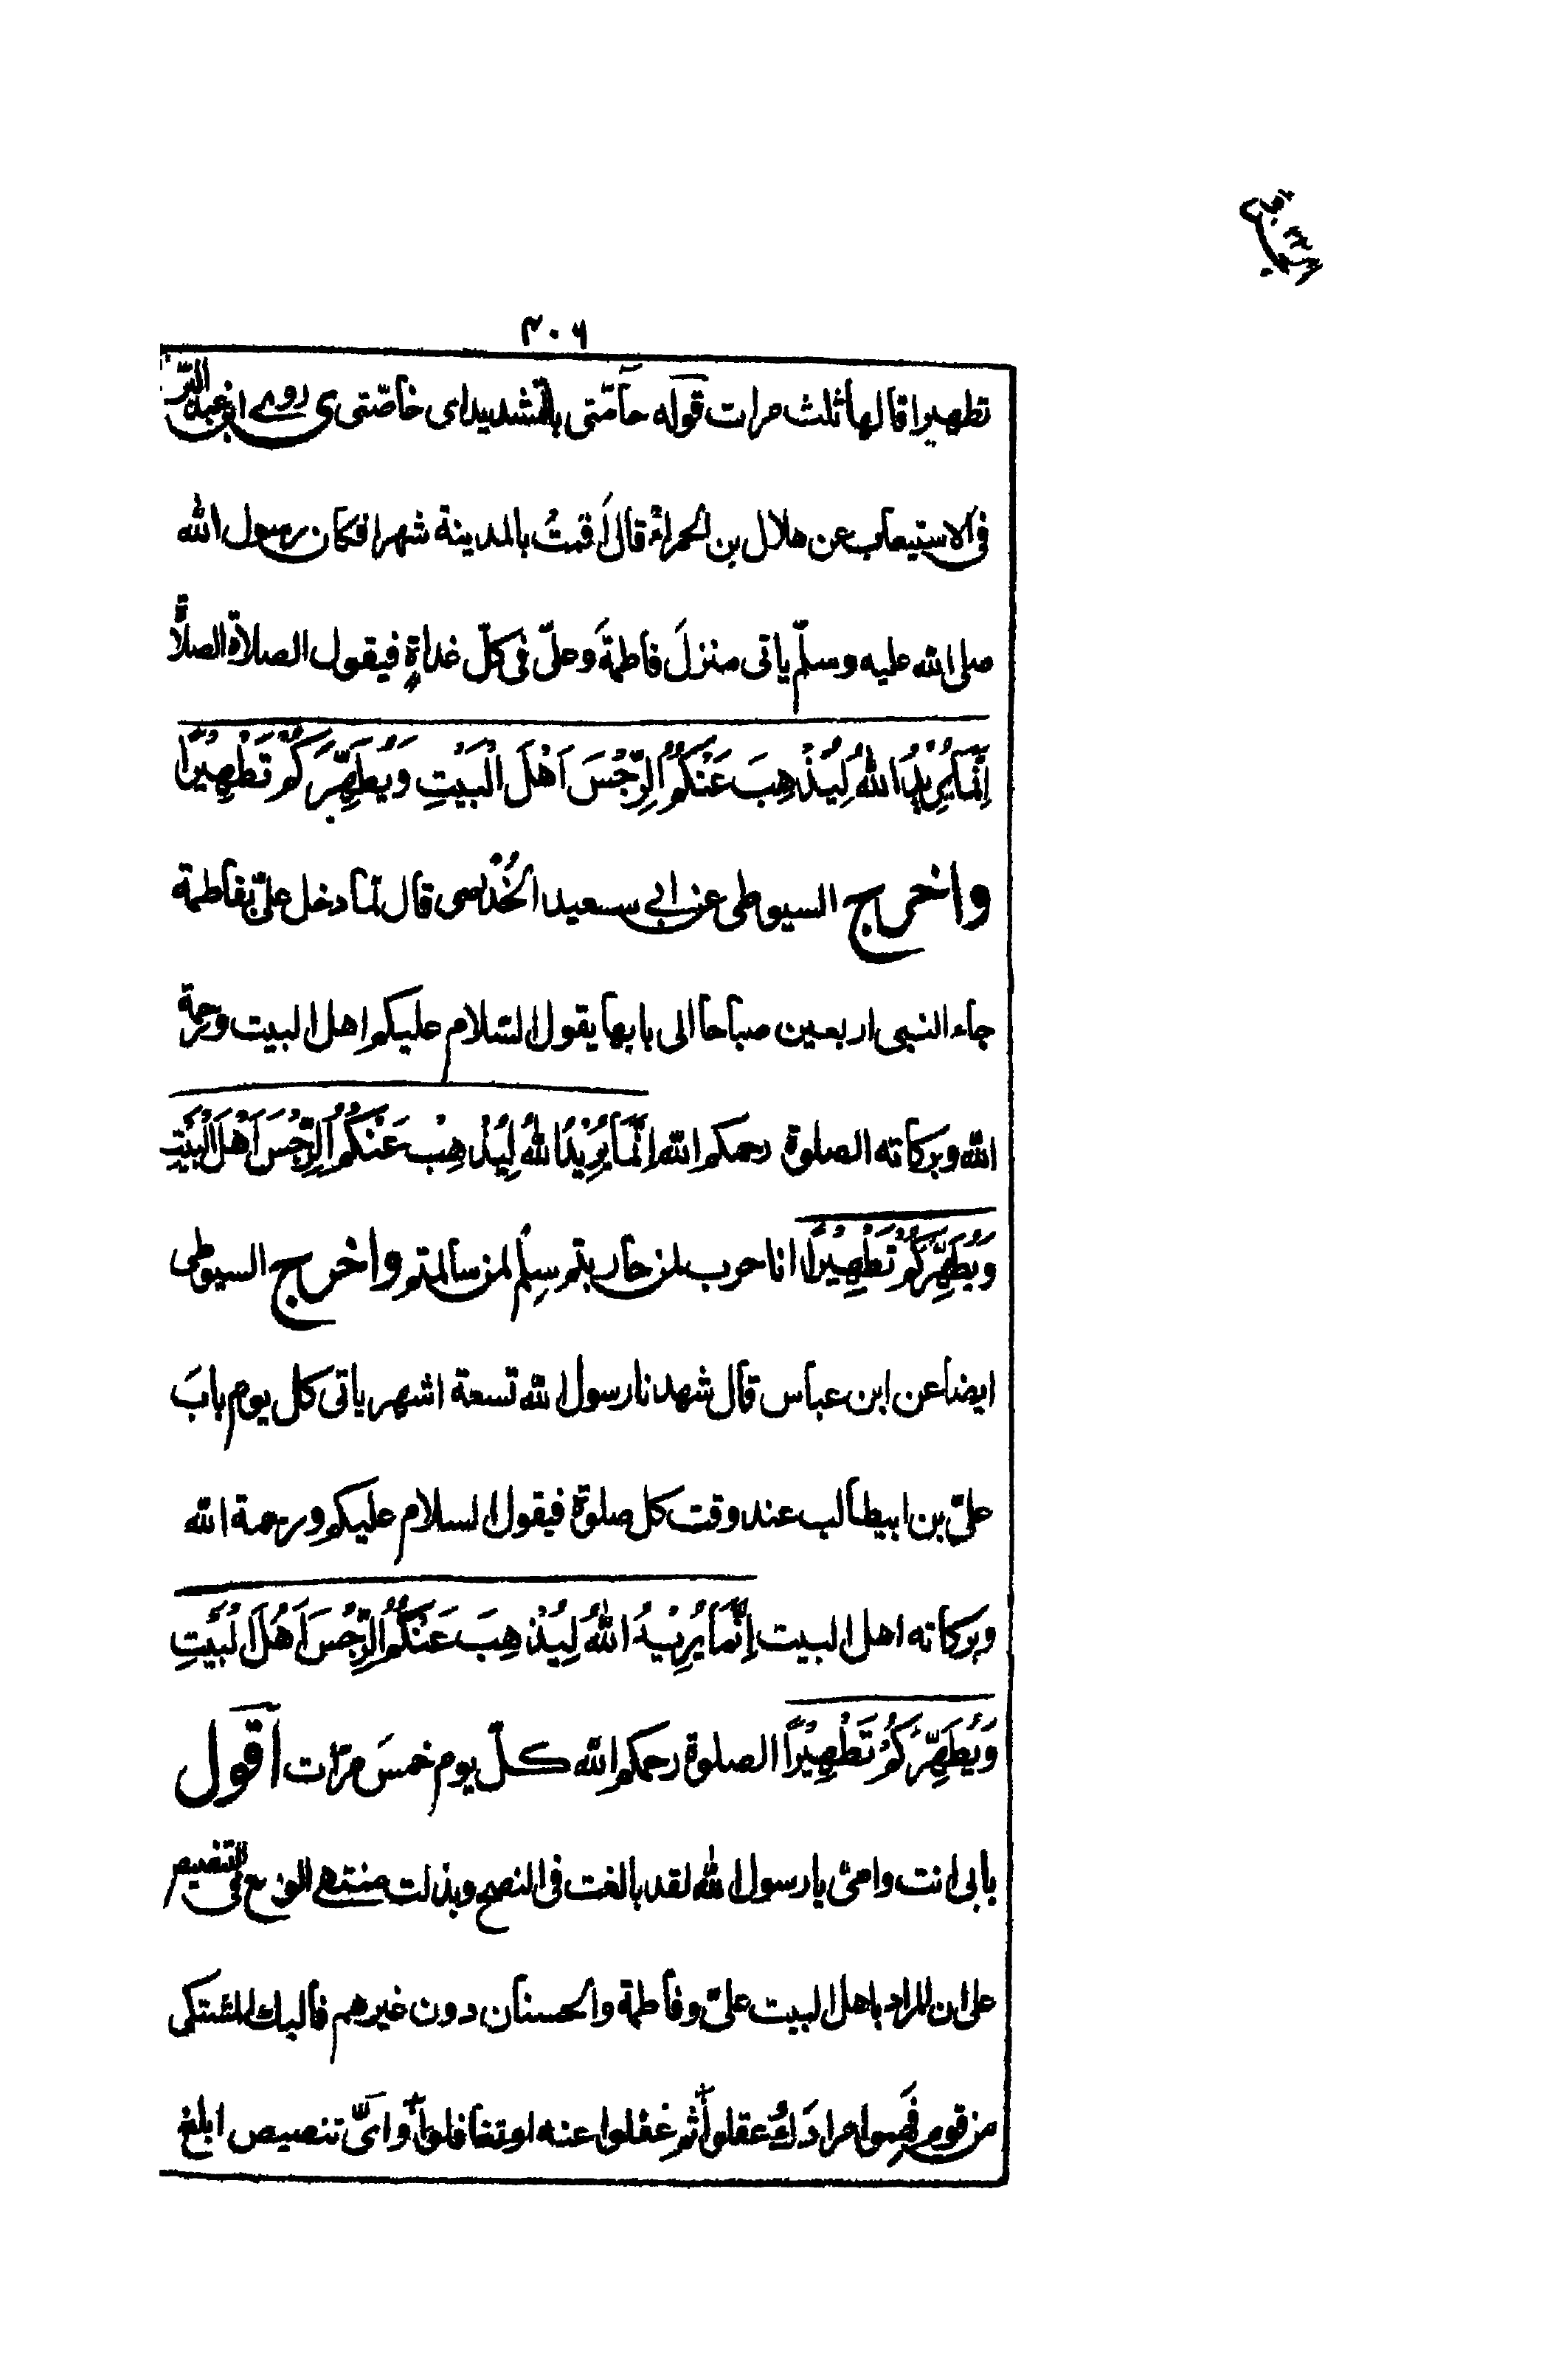 ۳۰۶
تطهيرا قالها ثلث مرات قوله حآمّتى بالتشديد اى خاصّتى ى روى ابن عبد البّر
فى الاستيعاب عن هلال بن الحمراء قال اَقمتُ بالمدينة شهرا فكان رسول الله
صلى الله عليه وسلّم ياتى منزلَ فاطمةَ وعلىّ فى كلّ غداةٍ فيقول الصلاةَ الصلاةَ
اِنَّمَا يُرِيْدُ اللهُ لِيُذْهِبَ عَنْكُمُ الرِّجْسَ اَهْلَ الْبَيْتِ وَيُطَهِّرَكُمْ تَطْهِيْرًا
واخرج السيوطى عن ابى سعيد الخُدْرى قال لما دخل علىّ بفاطمة
جاء النبى اربعين صباحا الى بابها يقول السّلام عليكم اهل البيت ورحمة
الله وبركاته الصلوة رحمكم الله اِنَّمَا يُرِيْدُ اللهُ لِيُذْهِبَ عَنْكُمُ الرِّجْسَ اَهْلَ الْبَيْتِ
وَيُطَهِّرَكُمْ تَطْهِيْرًا انا حرب لمن حاربتم سِلم لمن سالمتم واخرج السيوطى
ايضا عن ابن عباس قال شهدنا رسول الله تسعة اشهر ياتى كل يوم بابَ
علىّ بن ابيطالب عند وقت كل صلوة فيقول السلام عليكم ورحمة الله
وبركاته اهل البيت اِنَّمَا يُرِيْدُ اللهُ لِيُذْهِبَ عَنْكُمُ الرِّجْسَ اَهْلَ الْبَيْتِ
وَيُطَهِّرَكُمْ تَطْهِيْرًا الصلوة رحمكم الله كلّ يوم خمسَ مرّات اَقول
بابى انت وامى يا رسول الله لقد بالغت فى النصح وبذلت منتهى الوسع فى التنصيص
على ان المراد باهل البيت علىّ وفاطمة والحسنان دون غيرهم فاليك المشتكى
من قوم فهموا مرادَكَ وعقلوا ثم غفلوا عنه او تغافلوا واىّ تنصيص ابلغ